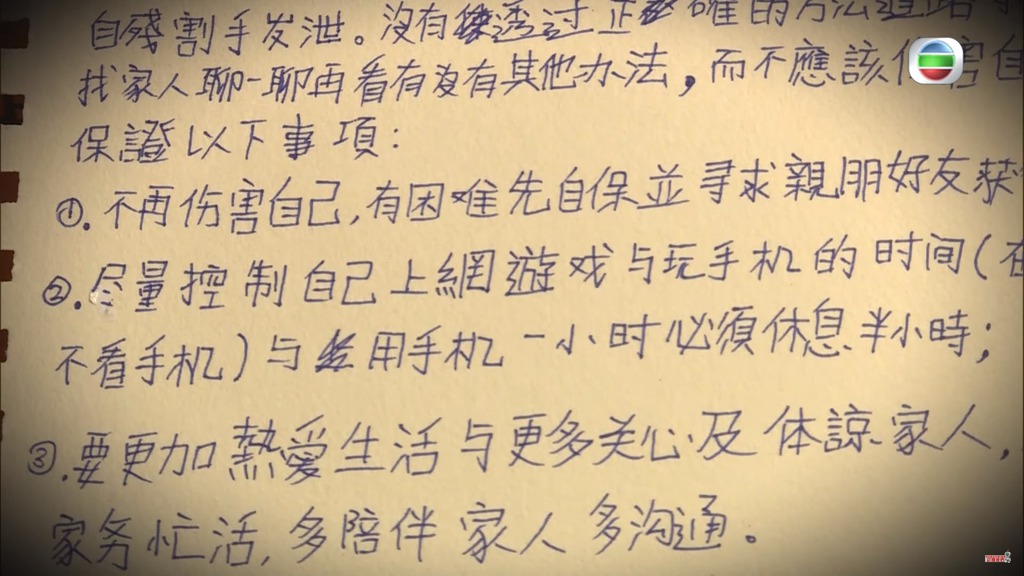 自殘割手发泄。沒有透过正確的方法
找家人聊一聊再看有沒有其他办法，而不應該害自
保證以下事項：
①.不再伤害自己，有困难先自保並寻求親朋好友获
②.尽量控制自己上網遊戏与玩手机的时间（在
不看手机）与用手机一小时必須休息半小時；
③.要更加熱爱生活与更多关心及体諒家人，
家务忙活，多陪伴家人多沟通。